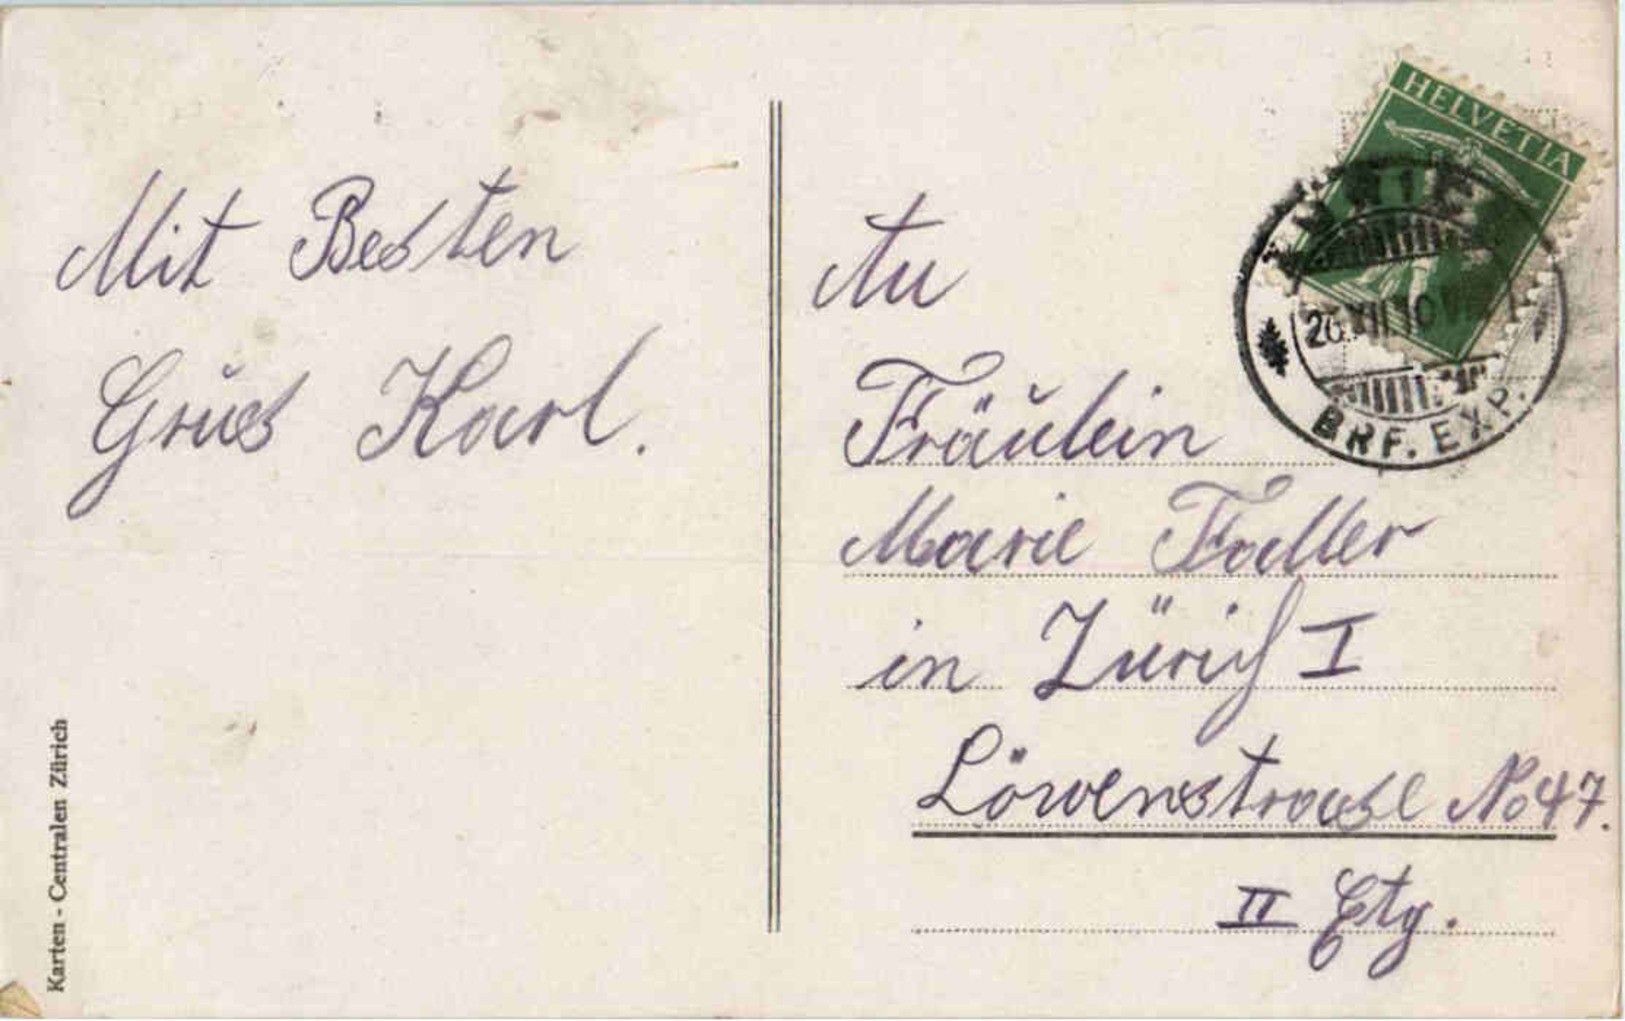 Mit Besten
Grüss Karl.
Karten - Centralen Zürich
HELVETIA
ZÜRICH
26.XII.10
BRF. EXP.
An
Fräulein
Marie Faller
in Zürich I
Löwenstrasse No 47.
II Etg.